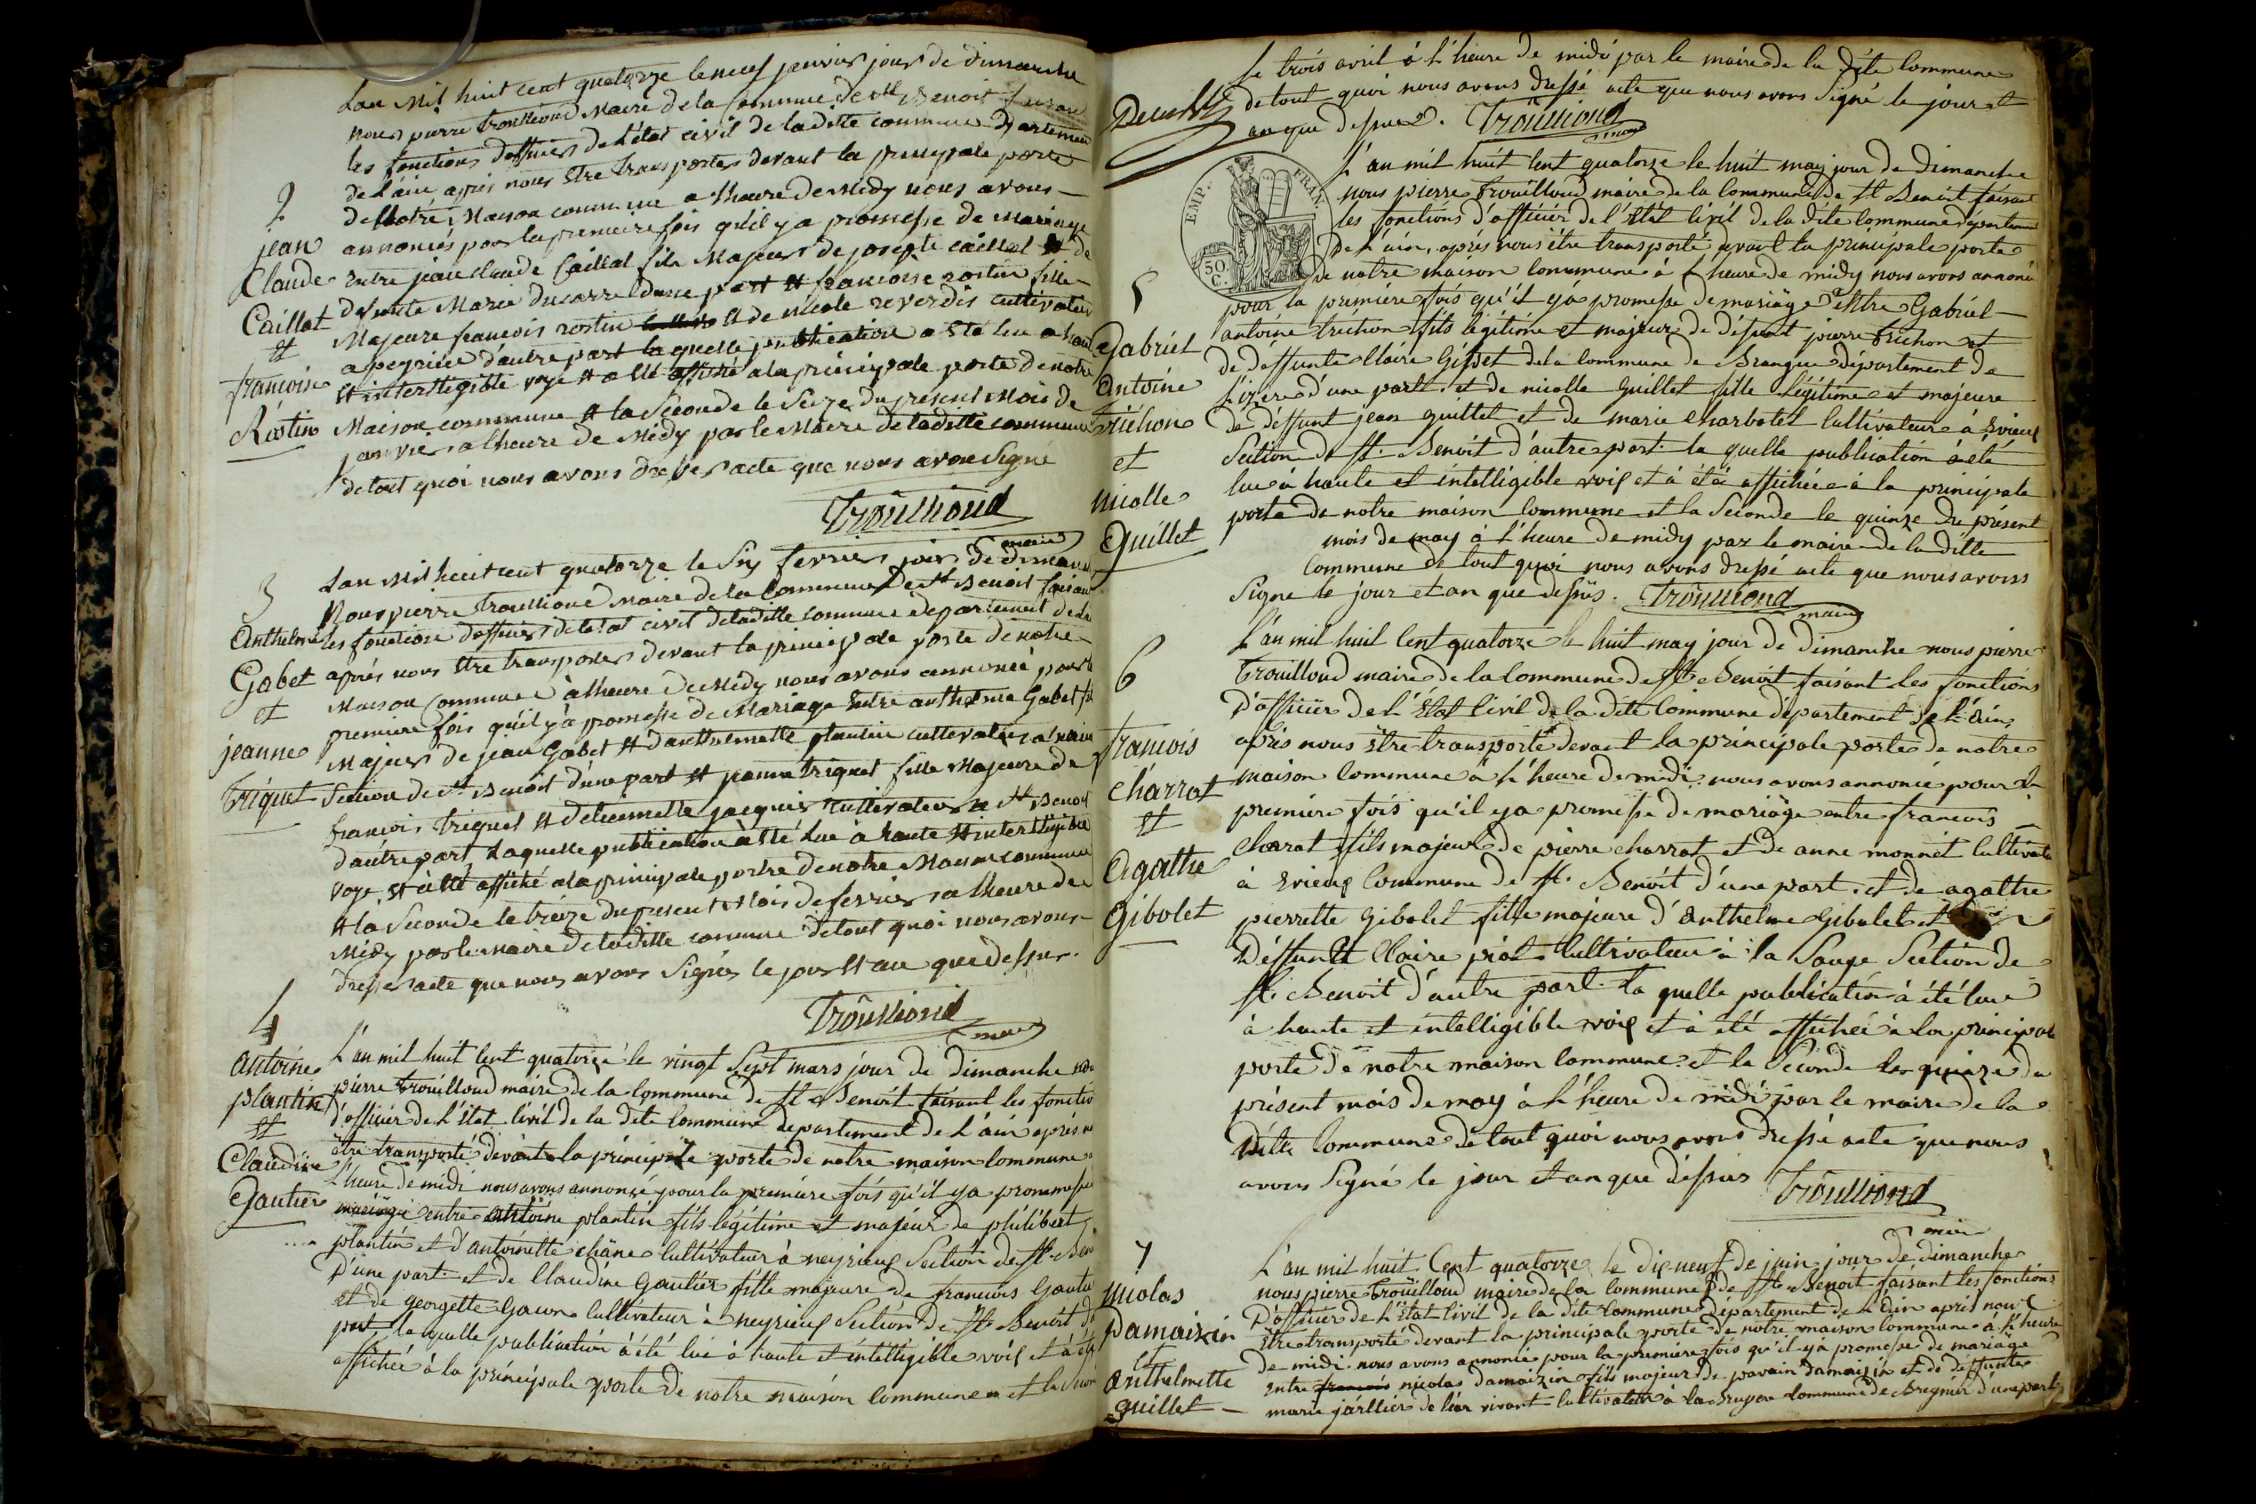 2
jean
Claude
Caillat
et
francoise
Rostin
Lan Mil huit cent quatorze le neuf janvier jour de dimanche
Nous pierre trouilloud Maire de la commune de st Benoit faisant
les fonctions dofficier de letat civil de laditte commune departement
de Lain apres nous etre transportes devant la principale porte
de Notre Maison commune a lheure de Midy nous avons
annoncés pour la premiere fois quil y a promesse de Mariage
Entre jean Claude Caillat fils Majeur de joseph Caillat et de
defunte Marie Ducarre dune part et francoise rostin fille
Majeure francois rostin et de nicole reverdis cultivateur
a pegrieu dautre part la quelle publication a été lue a haute
et interlligible voye et a été affiché a la principale porte de notre
Maison commune et la Seconde le Seize du present Mois de
janvier a lheure de Midy par le Maire de laditte commune
de tout quoi nous avons dressé acte que nous avons Signé
Trouilloud
maire
3
Anthelme
Gabet
et
jeanne
Triquet
Lan Mil huit cent quatorze le Six fevrier jour de dimanche
Nous pierre Trouilloud Maire de la Commune de st Benoit faisant
les fonctions dofficier de letat civil de laditte commune departement de Lain
aprés nous etre transportes devant la principale porte de notre
Maison Commune à lheure de Midy nous avons annoncé pour la
premiere fois quil y a promesse de Mariage Entre anthelme Gabet fils
Majeur de jean Gabet et danthelmette plantin cultivateur a
Section de st Benoit dune part et jeanne triquet fille Majeure de
francois Triquet et detiennette jacquier cultivateur a st Benoit
dautre part Laquelle publication à été Lue à haute et interlligible
voye et à été affiché a la principale portre de notre Maison commune
et la Seconde le treize du present Mois de fevrier a lheure de
Midy par le Maire de laditte commune de tout quoi nous avons
dressé acte que nous avons Signés le jour et an que dessus.
Trouilloud
maire
4
antoine
plantin
et
Claudine
Gautier
L'an mil huit cent quatorze le vingt Sept mars jour de dimanche nous
pierre trouilloud maire de la commune de st Benoit faisant les fonctions
d'officier de L'état Civil de la dite Commune departement de L'ain aprés nous
être transporté devant la principale porte de notre maison commune
L'heure de midi nous avons annoncé pour la premiere fois qu'il ya promesse
mariage entre antoine plantin fils légitime et majeur de philibert
plantin et d'antoinette chäne Cultivateur à neyrieu Section de st Benoit
D'une part et de Claudine Gautier fille majeure de francois Gautier
et de georgette Gacon Cultivateur à neyrieu Section de st Benoit d
part la quelle publication à été lue à haute et intelligible voix et à été
affichée à la principale porte de notre maison Commune et la Seconde
Le trois avril à L'heure de midi par le maire de la dite Commune
de tout quoi nous avons dressé acte que nous avons Signé le jour et
an que dessus. Trouilloud
maire
EMP. FRAN
50 C.
5
Gabriel
antoine
Trichon
et
nicolle
Guillet
L'an mil huit Cent quatorze le huit may jour de Dimanche
nous pierre trouilloud maire de la Commune de st Benoit faisant
les fonctions d'officier de l'état Civil de la dite Commune departement
de L'ain, aprés nous être transporté devant la principale porte
de notre maison Commune à L'heure de midy nous avons annoncé
pour la premiere fois qu'il y à promesse de mariage entre Gabriel
antoine trichon fils légitime et majeur de défunt pierre trichon et
de deffunte Claire Gisset de la Commune de Brangue département de
L'izere d'une part. et de nicolle guillet fille légitime et majeure
de deffunt jean guillet et de marie Charbotel Cultivateur à Evieux
Section de st. Benoit d'autre part. la quelle publication à été
lue à haute et intelligible voix et à été affichée à la principale
porte de notre maison Commune et la Seconde le quinze du présent
mois de may à L'heure de midy par le maire de la ditte
Commune de tout quoi nous avons dressé acte que nous avons
Signe le jour et an que dessus. Trouilloud
maire
6
francois
charrat
et
Agathe
Gibolet
L'an mil huit Cent quatorze le huit may jour de dimanche nous pierre
Trouilloud maire de la Commune de st Benoit faisant les fonctions
D'officier de L'état Civil de la dite Commune département de L'ain
aprés nous être transporté devant la principale porte de notre
maison Commune à L'heure de midi nous avons annoncé pour la
premiere fois qu'il ya promesse de mariage entre francois
Charrat fils majeur de pierre charrat et de anne monnet Cultivateur
à Evieux Commune de st. Benoit d'une part. et de agathe
pierrette Gibolet fille majeure d'Anthelme Gibolet et de
Deffunte Claire piot Cultivateur à la Sauge Section de
st. Benoit d'autre part. la quelle publication à été lue
à haute et intelligible voix et à été affichée à la principale
porte de notre maison Commune. et la Seconde le quinze du
présent mois de may à L'heure de midi par le maire de la
Ditte Commune de tout quoi nous avons dressé acte que nous
avons Signé le jour et an que dessus Trouilloud
maire
7
Nicolas
Damaizin
et
Anthelmette
guillet
L'an mil huit Cent quatorze le dix neuf de juin jour de dimanche
nous pierre trouilloud maire de la Commune de st Benoit faisant les fonctions
D'officier de L'état Civil de la dite Commune département de L'ain aprés nous
être transporté devant la principale porte de notre maison Commune à L'heure
de midi. nous avons annoncé pour la premiere fois qu'il yà promesse de mariage
entre francois nicolas Damaizin fils majeur de Damaizin et de deffunte
marie jarllier de leur vivant Cultivateur à la Bruyere Commune de Bregnier d'une part